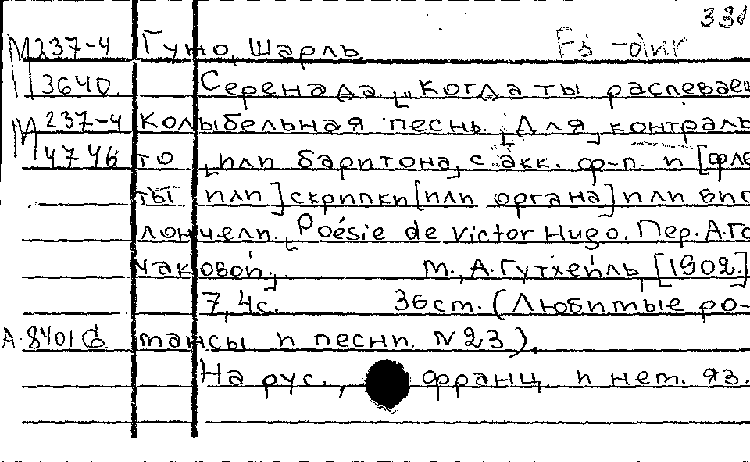 331
М237-4 Гуно, Шарль Fs-dur
П3640. Серенада „Когда ты распевае
М237-4 Колыбельная песнь. [Для] контраль
П4746 то [или баритона] с акк. ф-п. и [фле
ты или] скрипки [или органа] или вио
лончели. [Poésie de Victor Hugo. Пер. А.Го
чаковой]. М., А. Гутхейль, [1902.]
7, 4с. 36см. (Любимые ро-
А.8401 мансы и песни. №23).
На рус., франц. и нем. яз.